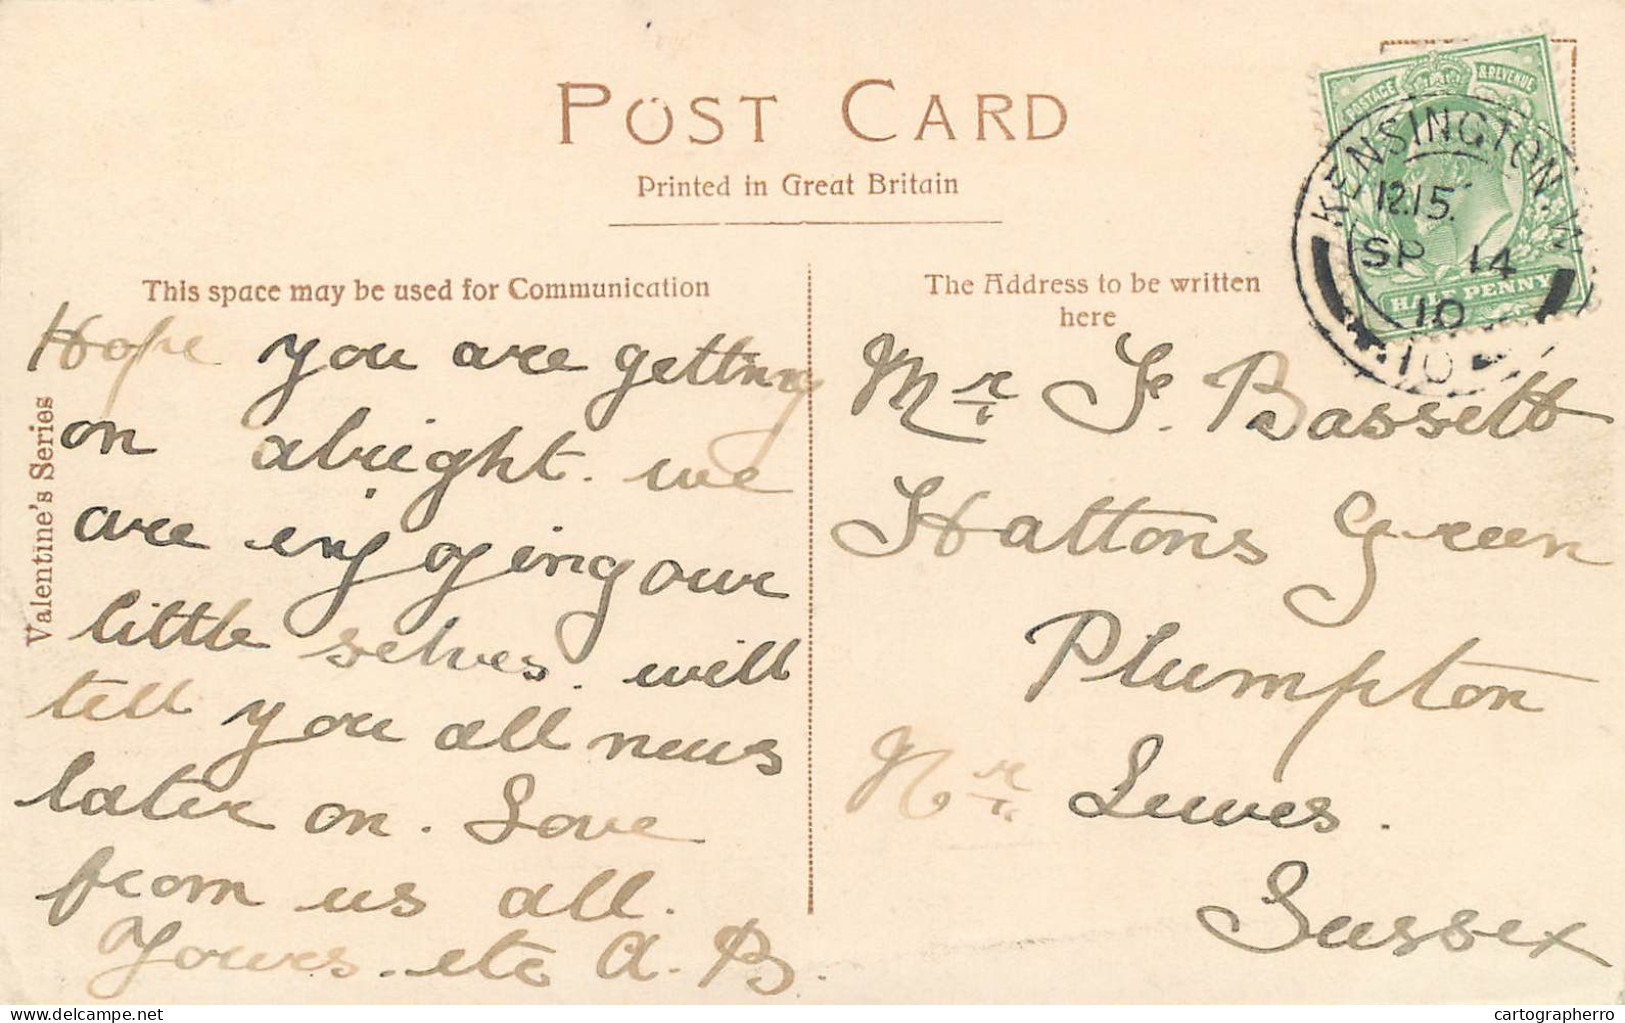 POST CARD
Printed in Great Britain
This space may be used for Communication
The Address to be written
here
Valentine's Series
POSTAGE & REVENUE
HALF PENNY
KENSINGTON.W
12.15
SP 14
10
10
Hope you are getting
on alright. we
are enjoying our
little selves. will
tell you all news
later on. Love
from us all.
Yours. etc A. B.
Mr F. Bassett
Hattons Green
Plumpton
Nr Lewes.
Sussex
delcampe.net
cartographerro